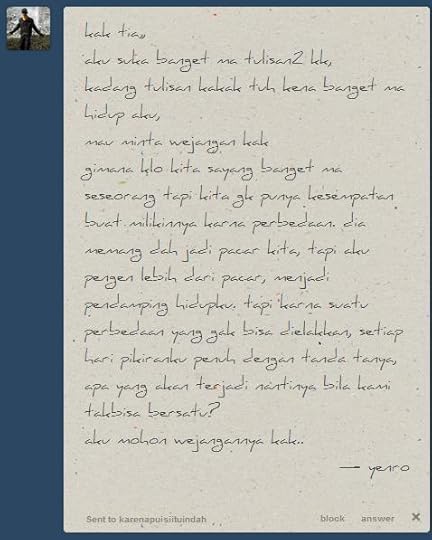 kak tia,,
aku suka banget ma tulisan2 kk,
kadang tulisan kakak tuh kena banget ma
hidup aku,
mau minta wejangan kak
gimana klo kita sayang banget ma
seseorang tapi kita gk punya kesempatan
buat milikinnya karna perbedaan. dia
memang dah jadi pacar kita, tapi aku
pengen lebih dari pacar, menjadi
pendamping hidupku. tapi karna suatu
perbedaan yang gak bisa dielakkan, setiap
hari pikiranku penuh dengan tanda tanya,
apa yang akan terjadi nantinya bila kami
takbisa bersatu?
aku mohon wejangannya kak..
— yenro
Sent to karenapuisiituindah block answer ×